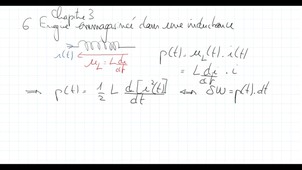 Chapitre 3
6 Energie emmagasinée dans une inductance
i(t) u_L = L di/dt
p(t) = u_L(t) . i(t)
= L di/dt . i
⟹ p(t) = 1/2 L d[i²(t)]/dt ⟺ δW = p(t).dt